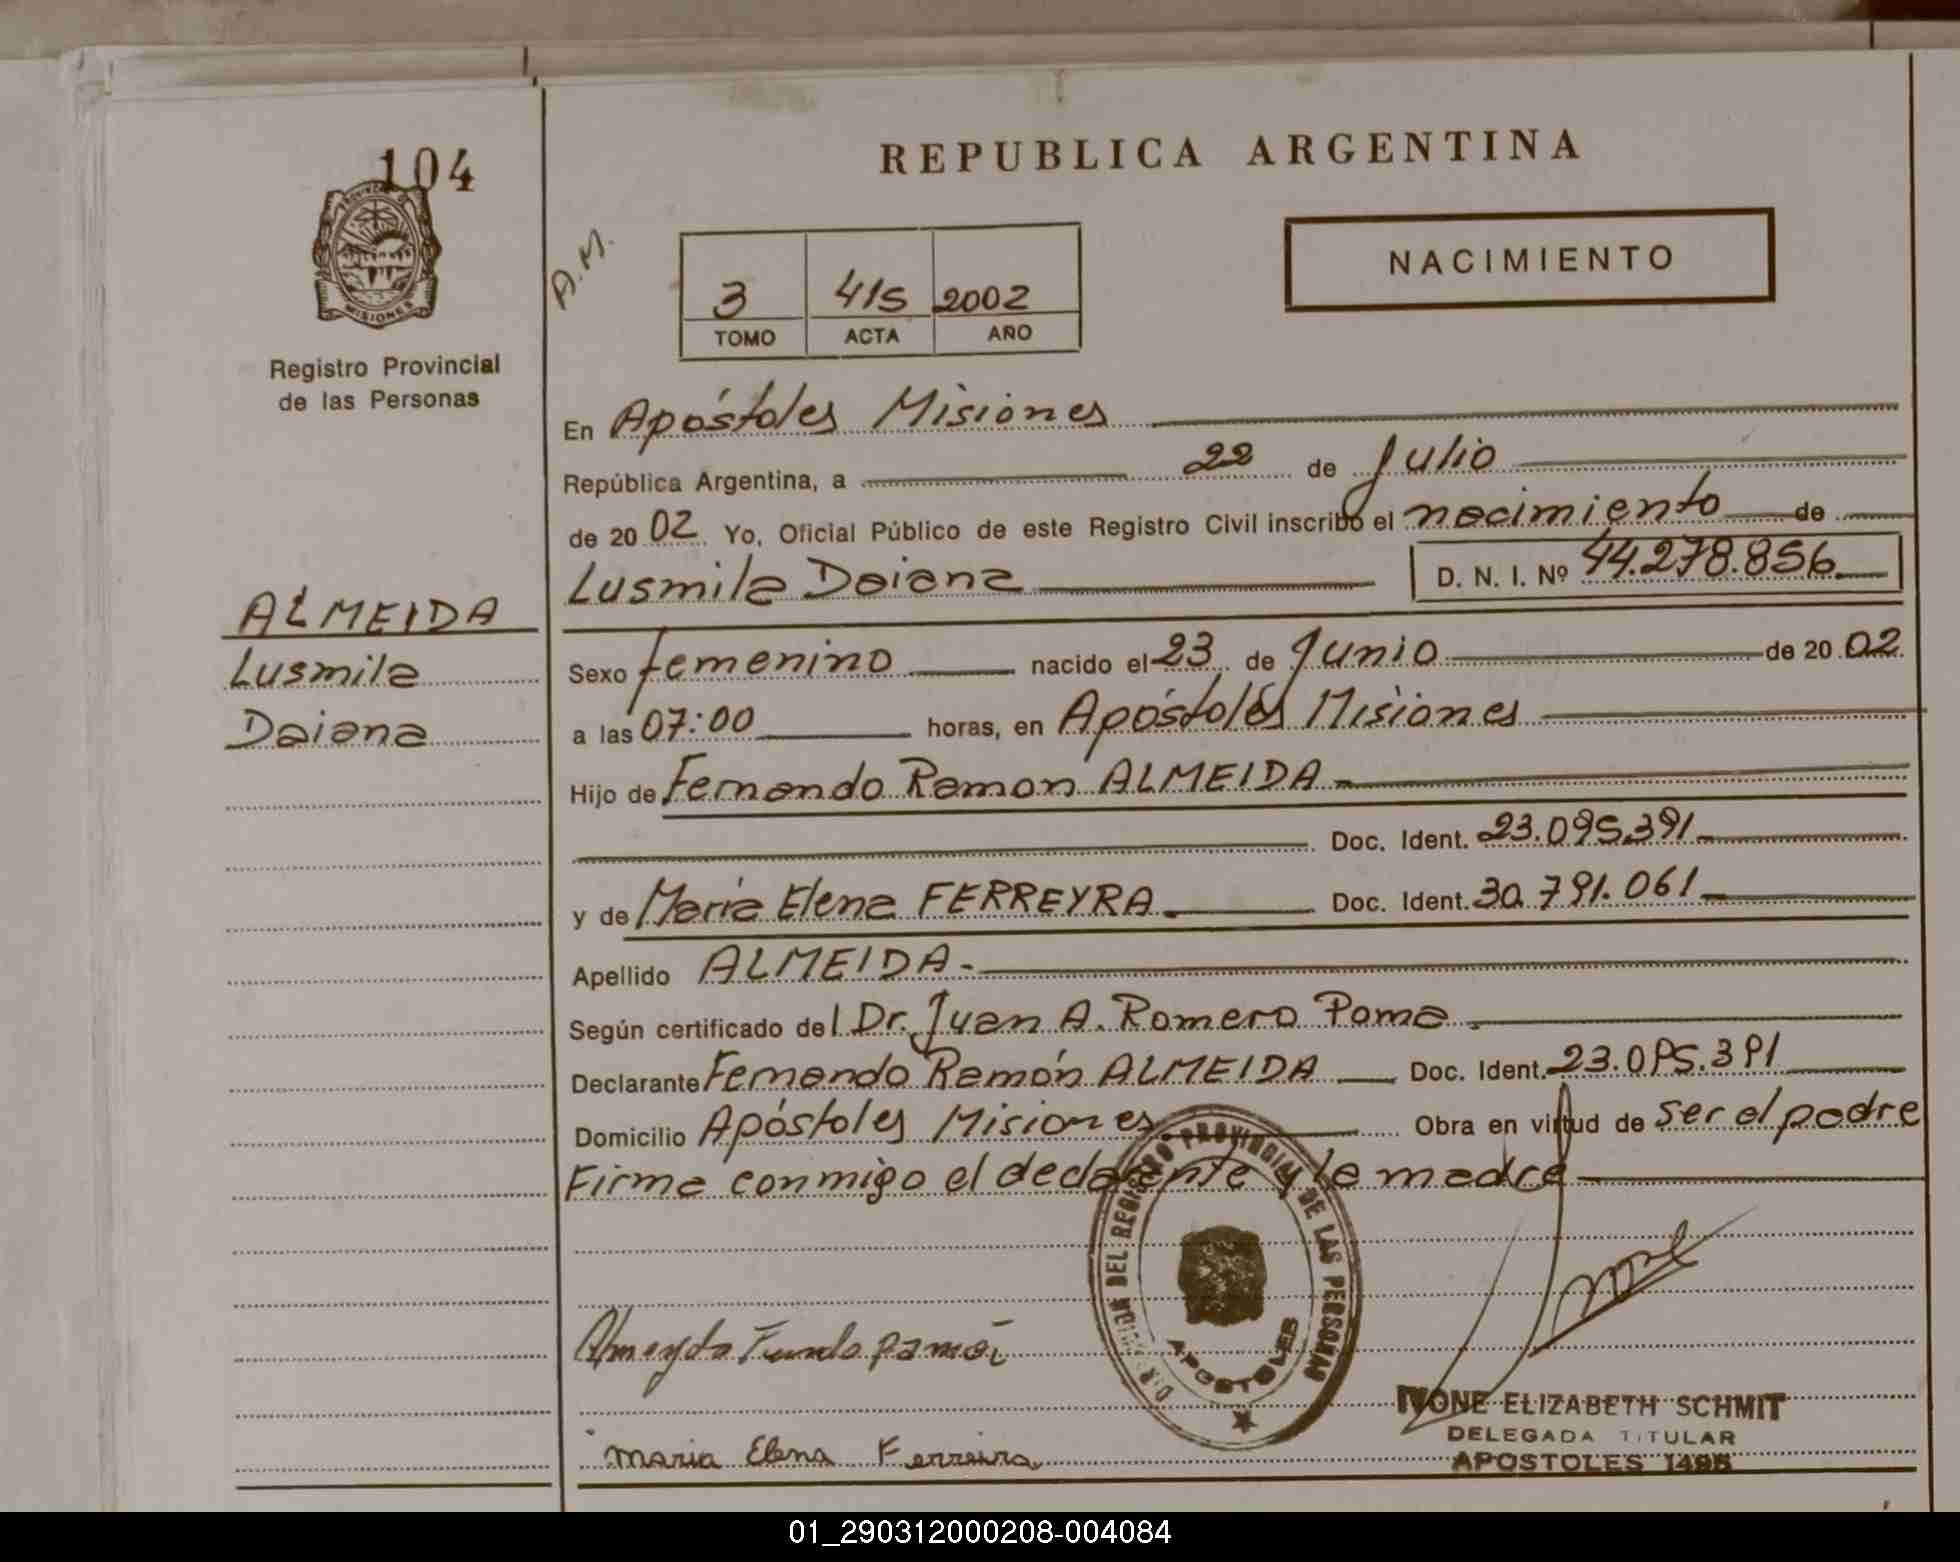 104
PROVINCIA DE
MISIONES
Registro Provincial
de las Personas
ALMEIDA
Lusmila
Daiana
REPUBLICA ARGENTINA
A.M.
3 415 2002
TOMO ACTA AÑO
NACIMIENTO
En Apóstoles Misiones
República Argentina, a 22 de Julio
de 2002 Yo, Oficial Público de este Registro Civil inscribo el nacimiento de
Lusmila Daiana D. N. I. Nº 44.278.856
Sexo femenino nacido el 23 de Junio de 2002
a las 07:00 horas, en Apóstoles Misiones
Hijo de Fernando Ramon ALMEIDA
Doc. Ident. 23.095.391
y de Maria Elena FERREYRA Doc. Ident. 30.791.061
Apellido ALMEIDA
Según certificado del Dr. Juan A. Romero Poma
Declarante Fernando Ramón ALMEIDA Doc. Ident. 23.095.391
Domicilio Apóstoles Misiones Obra en virtud de ser el padre
Firma conmigo el declarante y la madre
DIRECCION DEL REGISTRO PROVINCIAL DE LAS PERSONAS
APOSTOLES
IVONE ELIZABETH SCHMIT
DELEGADA TITULAR
APOSTOLES
Maria Elena Ferreira
01_290312000208-004084